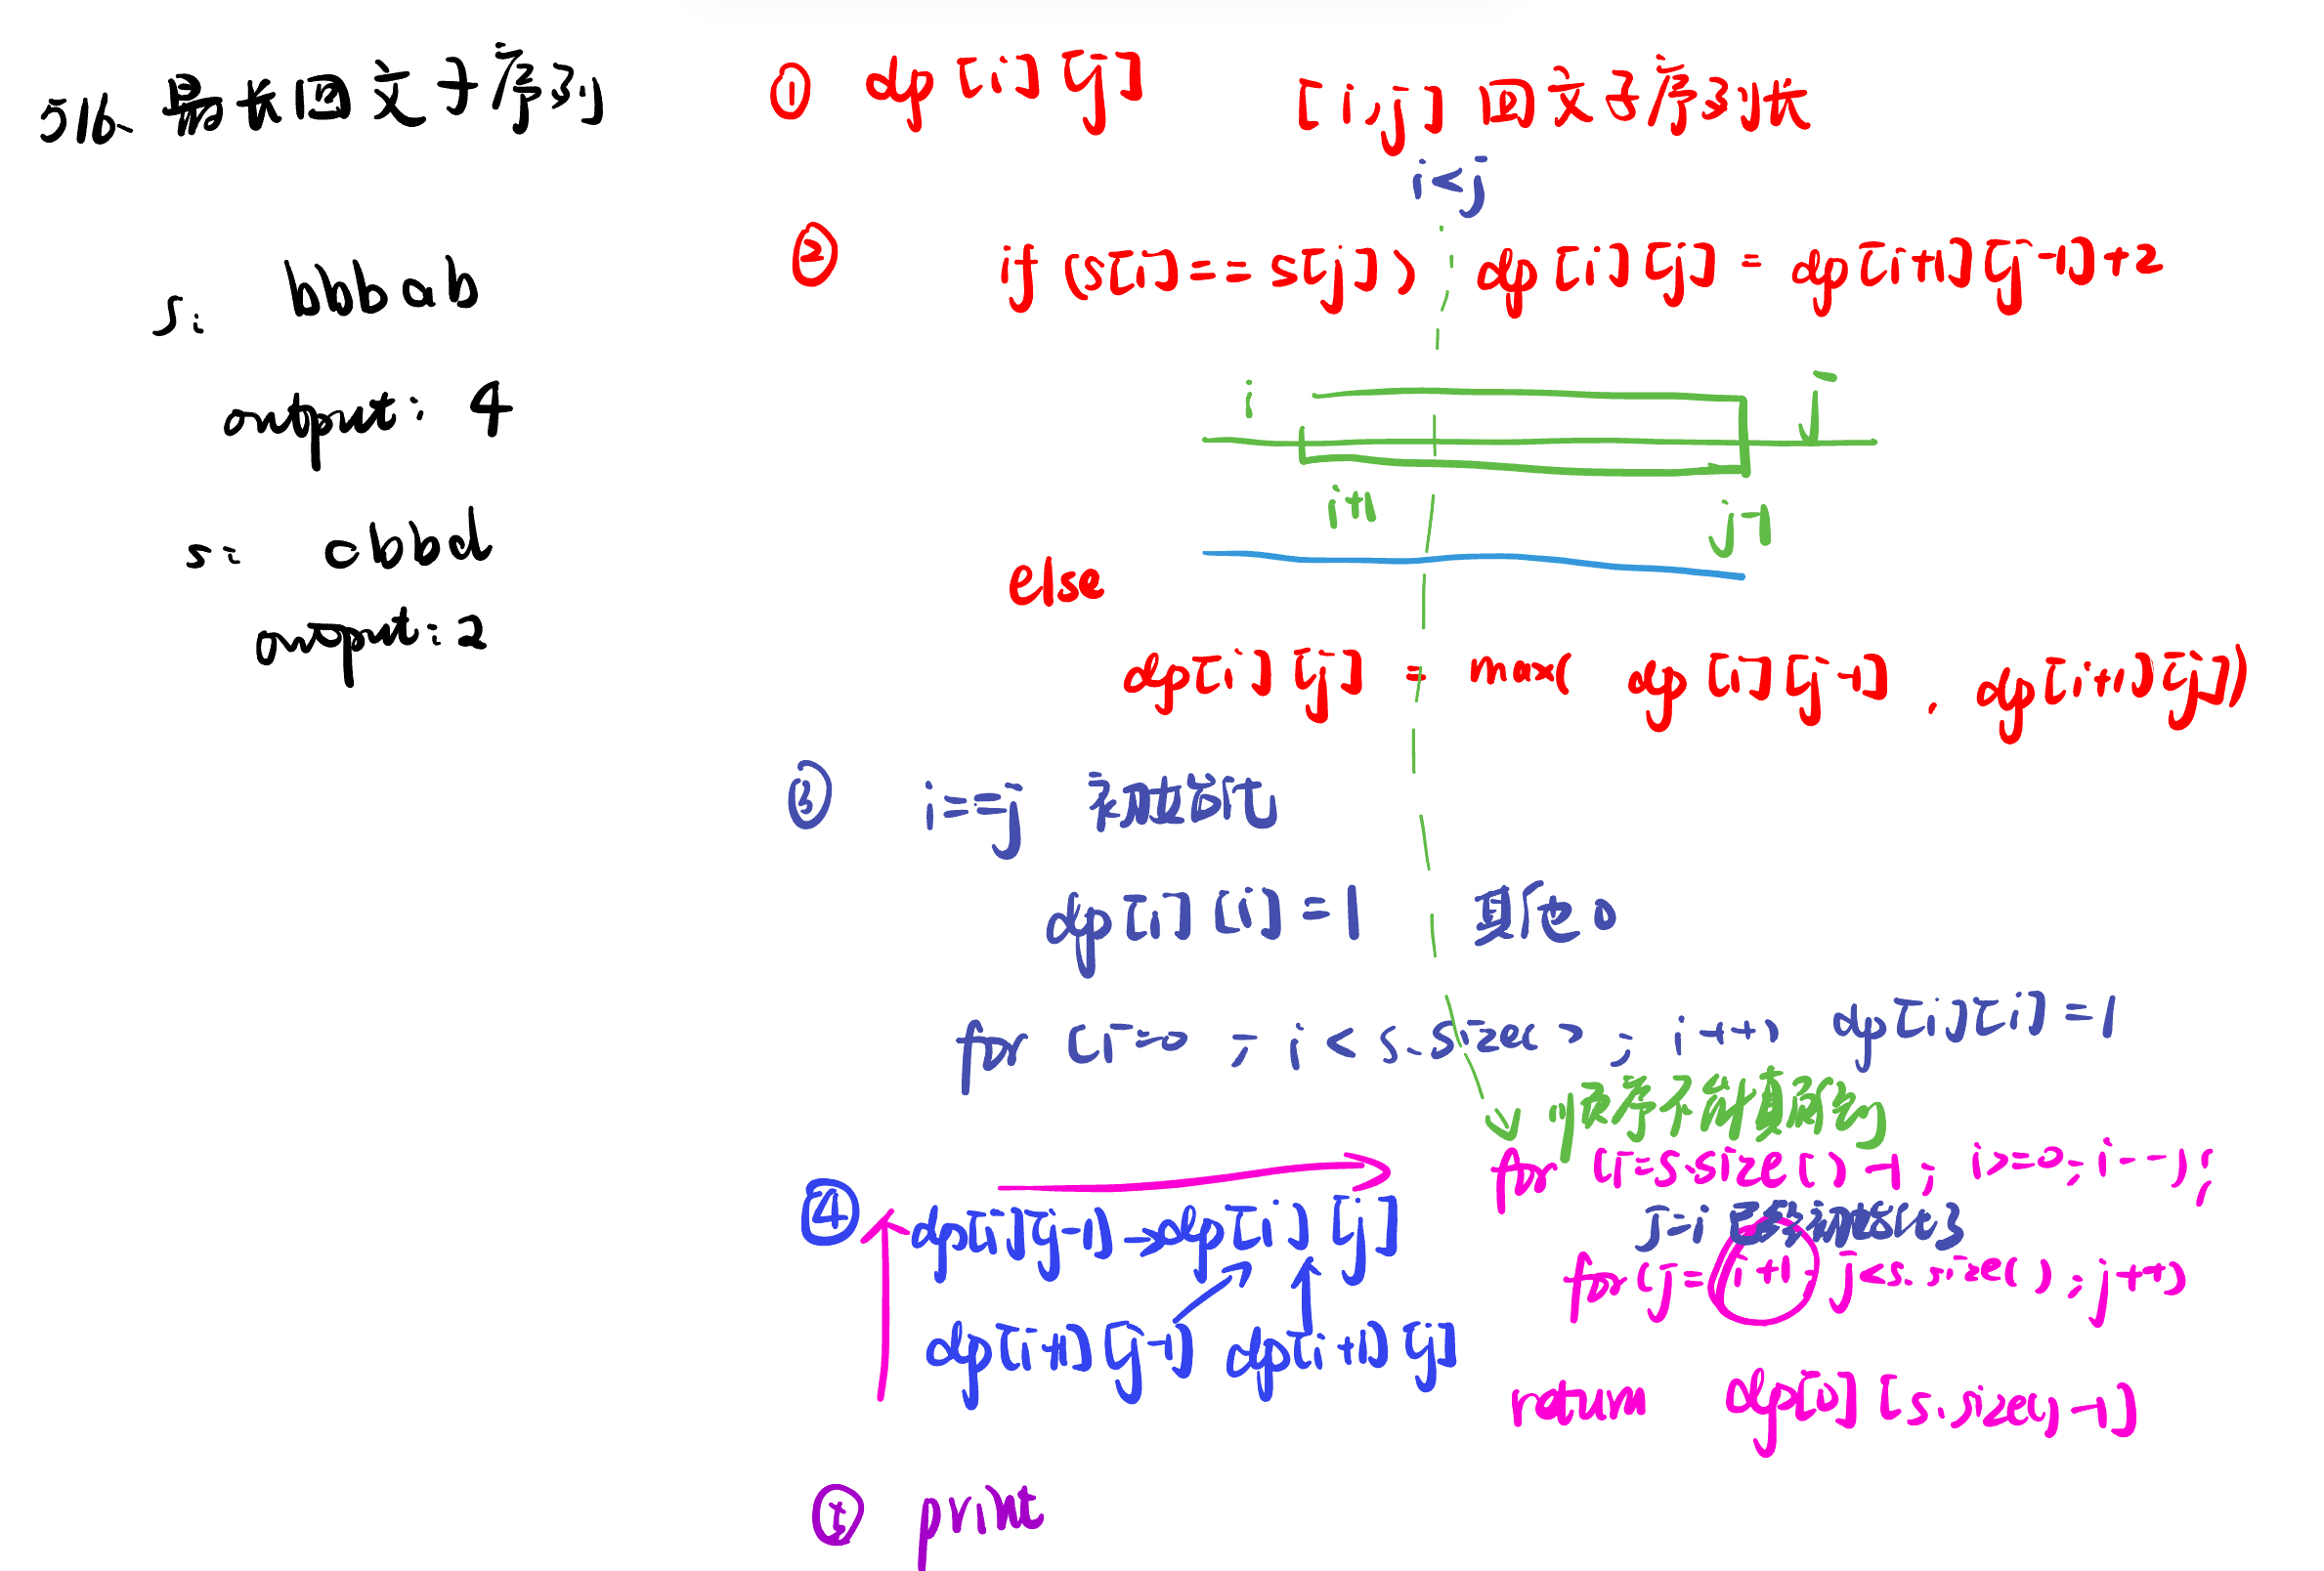 516、最长回文子序列
s: bbbab
output: 4
s: cbbd
output: 2
① dp[i][j] [i,j] 回文子序列长
i<j
② if (s[i]==s[j]) dp[i][j] = dp[i+1][j-1]+2
i j
i+1 j-1
else
dp[i][j] = max( dp[i][j-1] , dp[i+1][j])
③ i==j 初始化
dp[i][i]=1 其他0
for (i=0 ; i<s.size() ; i++) dp[i][i]=1
顺序不能
for (i=s.size()-1; i>=0; i--);
④ dp[i][j-1]→dp[i][j]
j=i 已经初始化了
for(j=i+1 j<s.size() ; j++)
dp[i+1][j-1] dp[i+1][j]
return dp[0][s.size()-1]
⑤ print